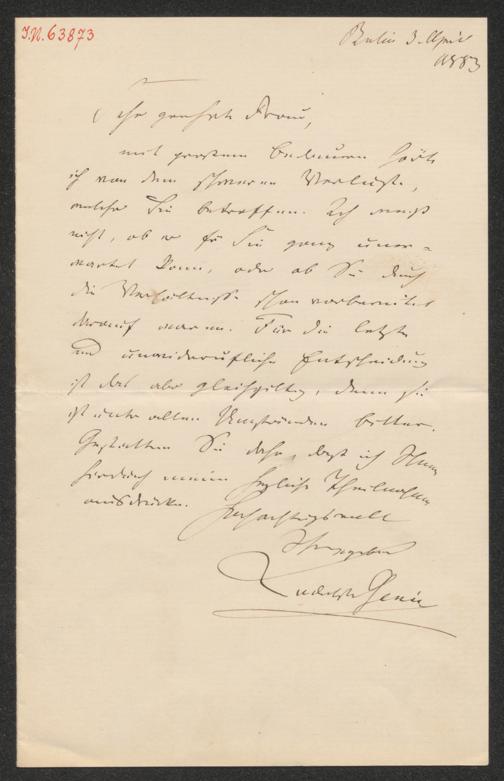 I.N. 63873
Berlin 3. April
1883
Sehr geehrte Frau,
mit grossem Bedauern hörte
ich von dem schweren Verluste,
welcher Sie betroffen. Ich weiß
nicht, ob er für Sie ganz uner-
wartet kam, oder ob Sie durch
die Verhältnisse schon vorbereitet
darauf waren. Für die letzte
und unwiderrufliche Entscheidung
ist das aber gleichgiltig, denn sie
ist unter allen Umständen bitter.
Gestatten Sie daher, dass ich Ihnen
hierdurch meine herzliche Theilnahme
ausdrücke.
Hochachtungsvoll
Ihr ergebener
Rudolph Genée